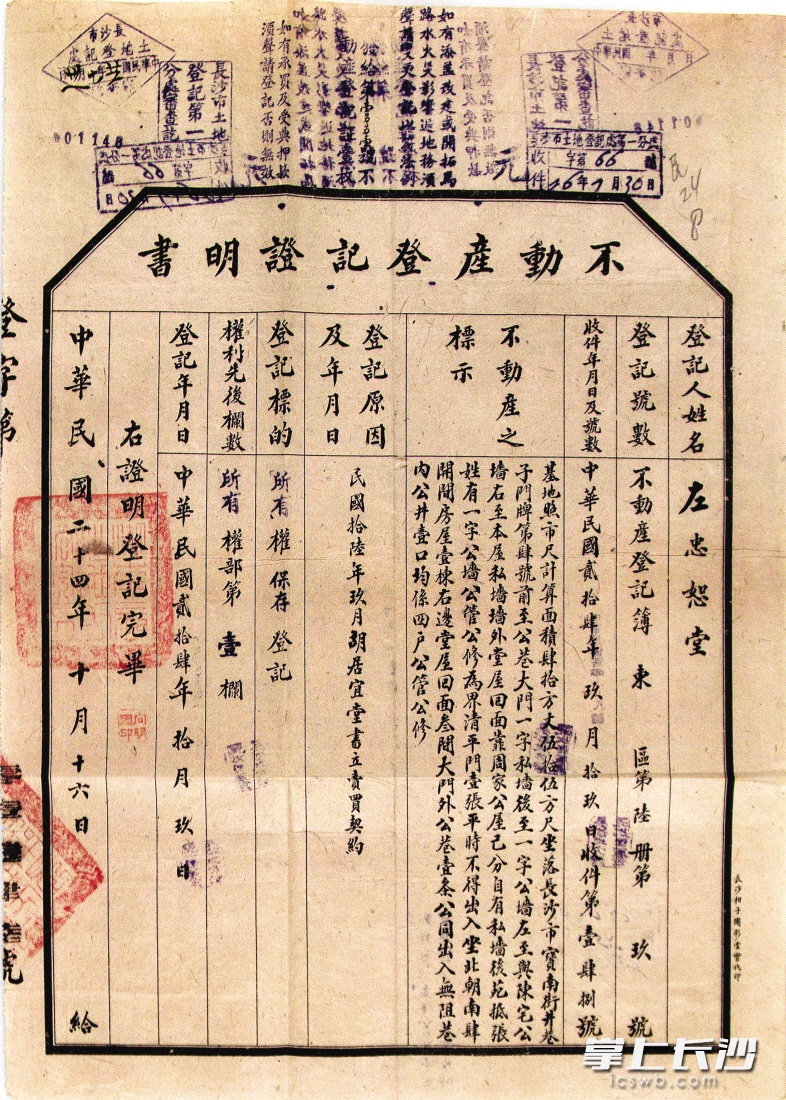 不動產登記證明書
登記人姓名 左忠恕堂
登記號數 不動產登記簿東區第陸冊第玖號
收件年月日及號數 中華民國貳拾肆年玖月拾玖日收件第壹肆捌號
不動產之標示
基地照市尺計算面積肆拾方丈伍拾伍方尺坐落長沙市寶南街井巷
子門牌第肆號前至公巷大門一字私墻後至一字公墻左至與陳宅公
墻右至本屋私墻墻外堂屋回面靠周家公屋已分自有私墻後苑抵張
姓有一字公墻公管公修為界清平門壹張平時不得出入坐北朝南肆
開間房屋壹棟右邊堂屋回面叁間大門外公巷壹条公同出入無阻巷
內公井壹口均係四户公管公修
登記原因及年月日 民國拾陸年玖月胡居宜堂書立賣買契約
登記標的 所有權保存登記
權利先後欄數 所有權部第壹欄
登記年月日 中華民國貳拾肆年拾月玖日
右證明登記完畢
中華民國二十四年十月十六日給
登字第
長沙市土地
登記第一
分處審查訖
長沙市土地登記處第一分處
收件
字第66號
26年9月30日
如有添蓋改建或開拓馬
路水火災影響近地務須
如有承買及受典押款
須聲請登記否則無效
01148
24
8
掌上长沙
icswb.com